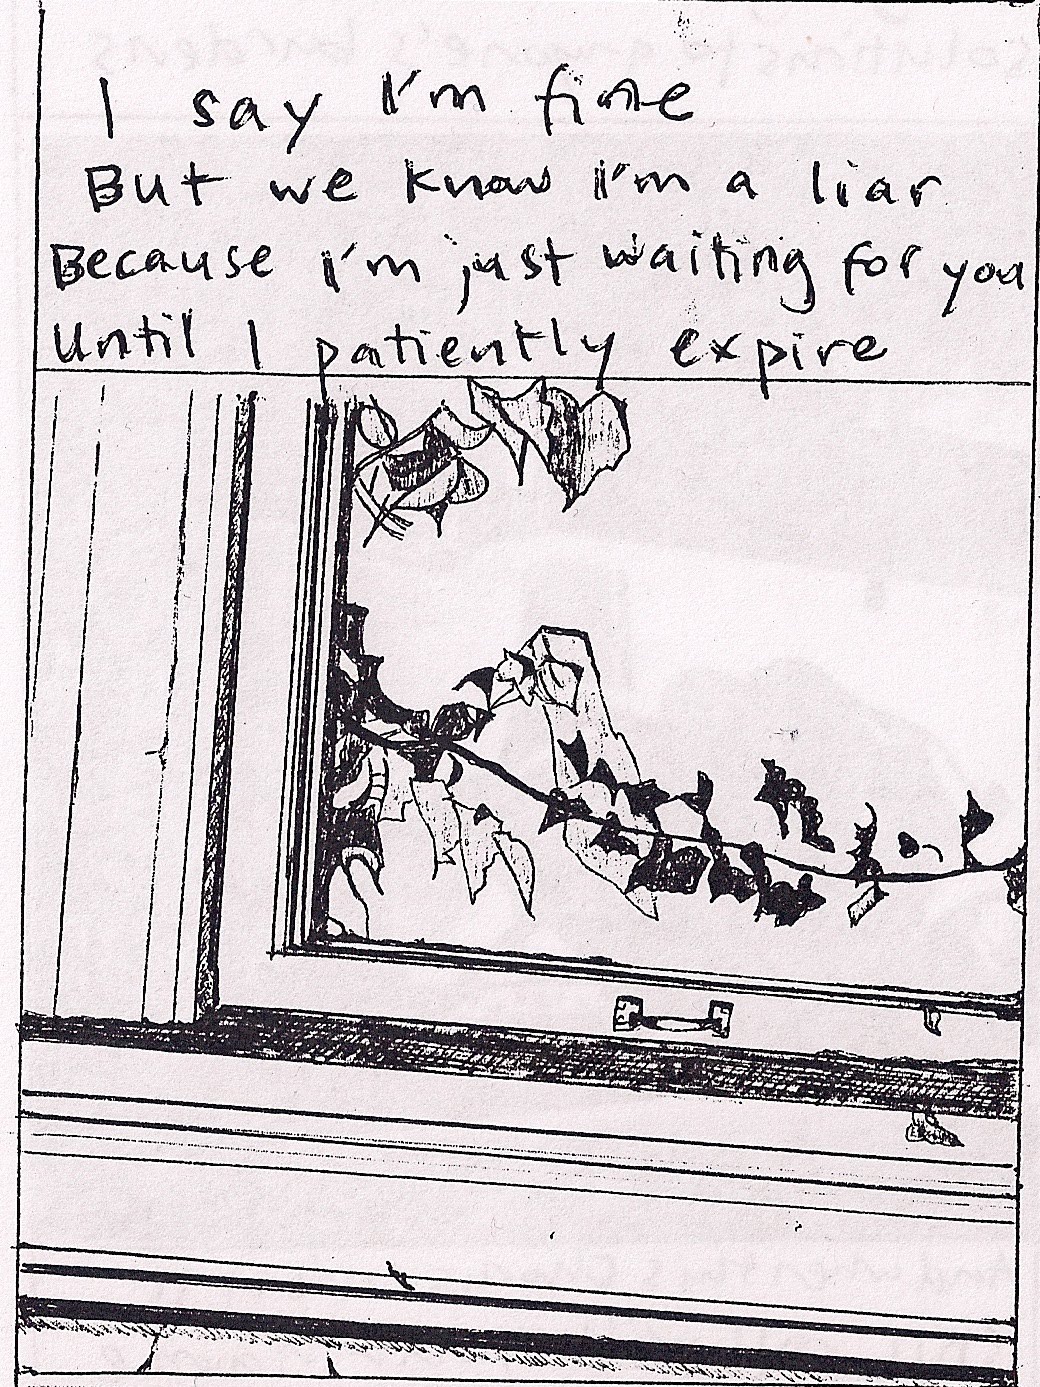 I say I'm fine
But we know I'm a liar
Because I'm just waiting for you
Until I patiently expire